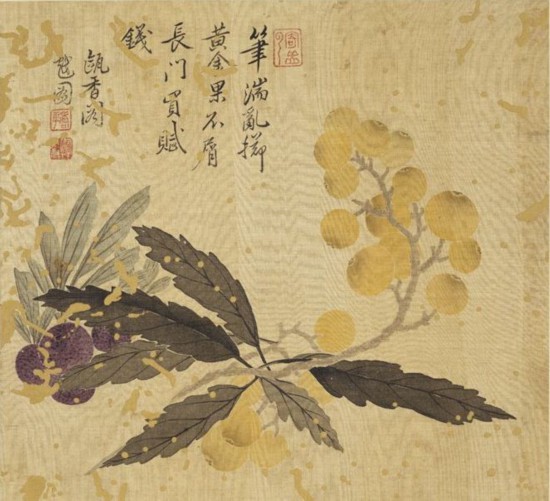 筆湍亂擲
黃金果不屑
長门買賦
錢
甌香阁